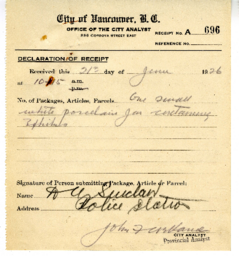 City of Vancouver, B.C.
OFFICE OF THE CITY ANALYST
RECEIPT No. A 696
REFERENCE No.
DECLARATION/OF RECEIPT
Received this 21st day of June 1926
of 10.15 a.m.
p.m.
No. of Packages, Articles, Parcels. One small
white porcelain jar containing
Signature of Person submitting Package, Article or Parcel.
Name Sinclair
Address Police Station
CITY ANALYST
Provincial Analyst